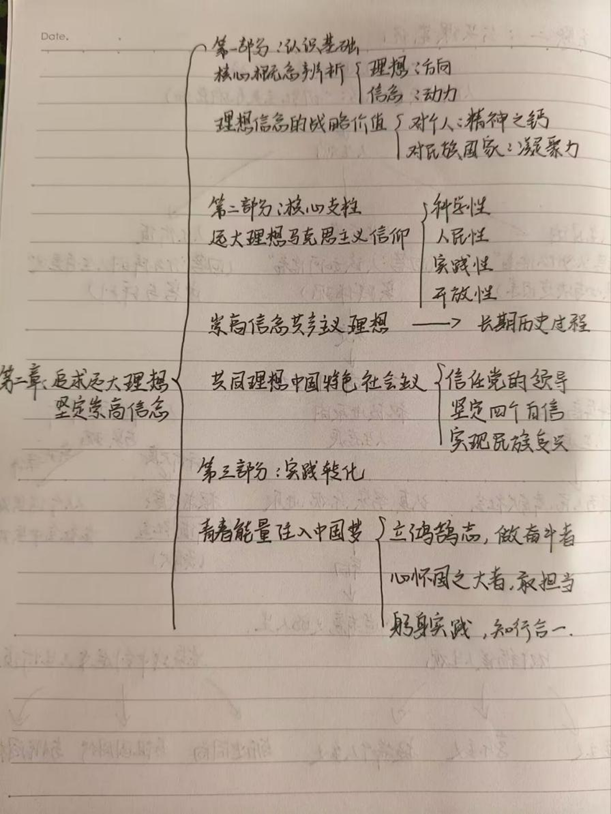 Date.
第一部分：认识基础
核心概念辨析
理想：方向
信念：动力
理想信念的战略价值
对个人：精神之钙
对民族国家：凝聚力
第二部分：核心支柱
远大理想马克思主义信仰
科学性
人民性
实践性
开放性
崇高信念共产主义理想 → 长期历史过程
第二章、追求远大理想
坚定崇高信念
共同理想中国特色社会主义
信任党的领导
坚定四个自信
实现民族复兴
第三部分：实践转化
青春能量注入中国梦
立鸿鹄志，做奋斗者
心怀国之大者，敢担当
躬身实践，知行合一.